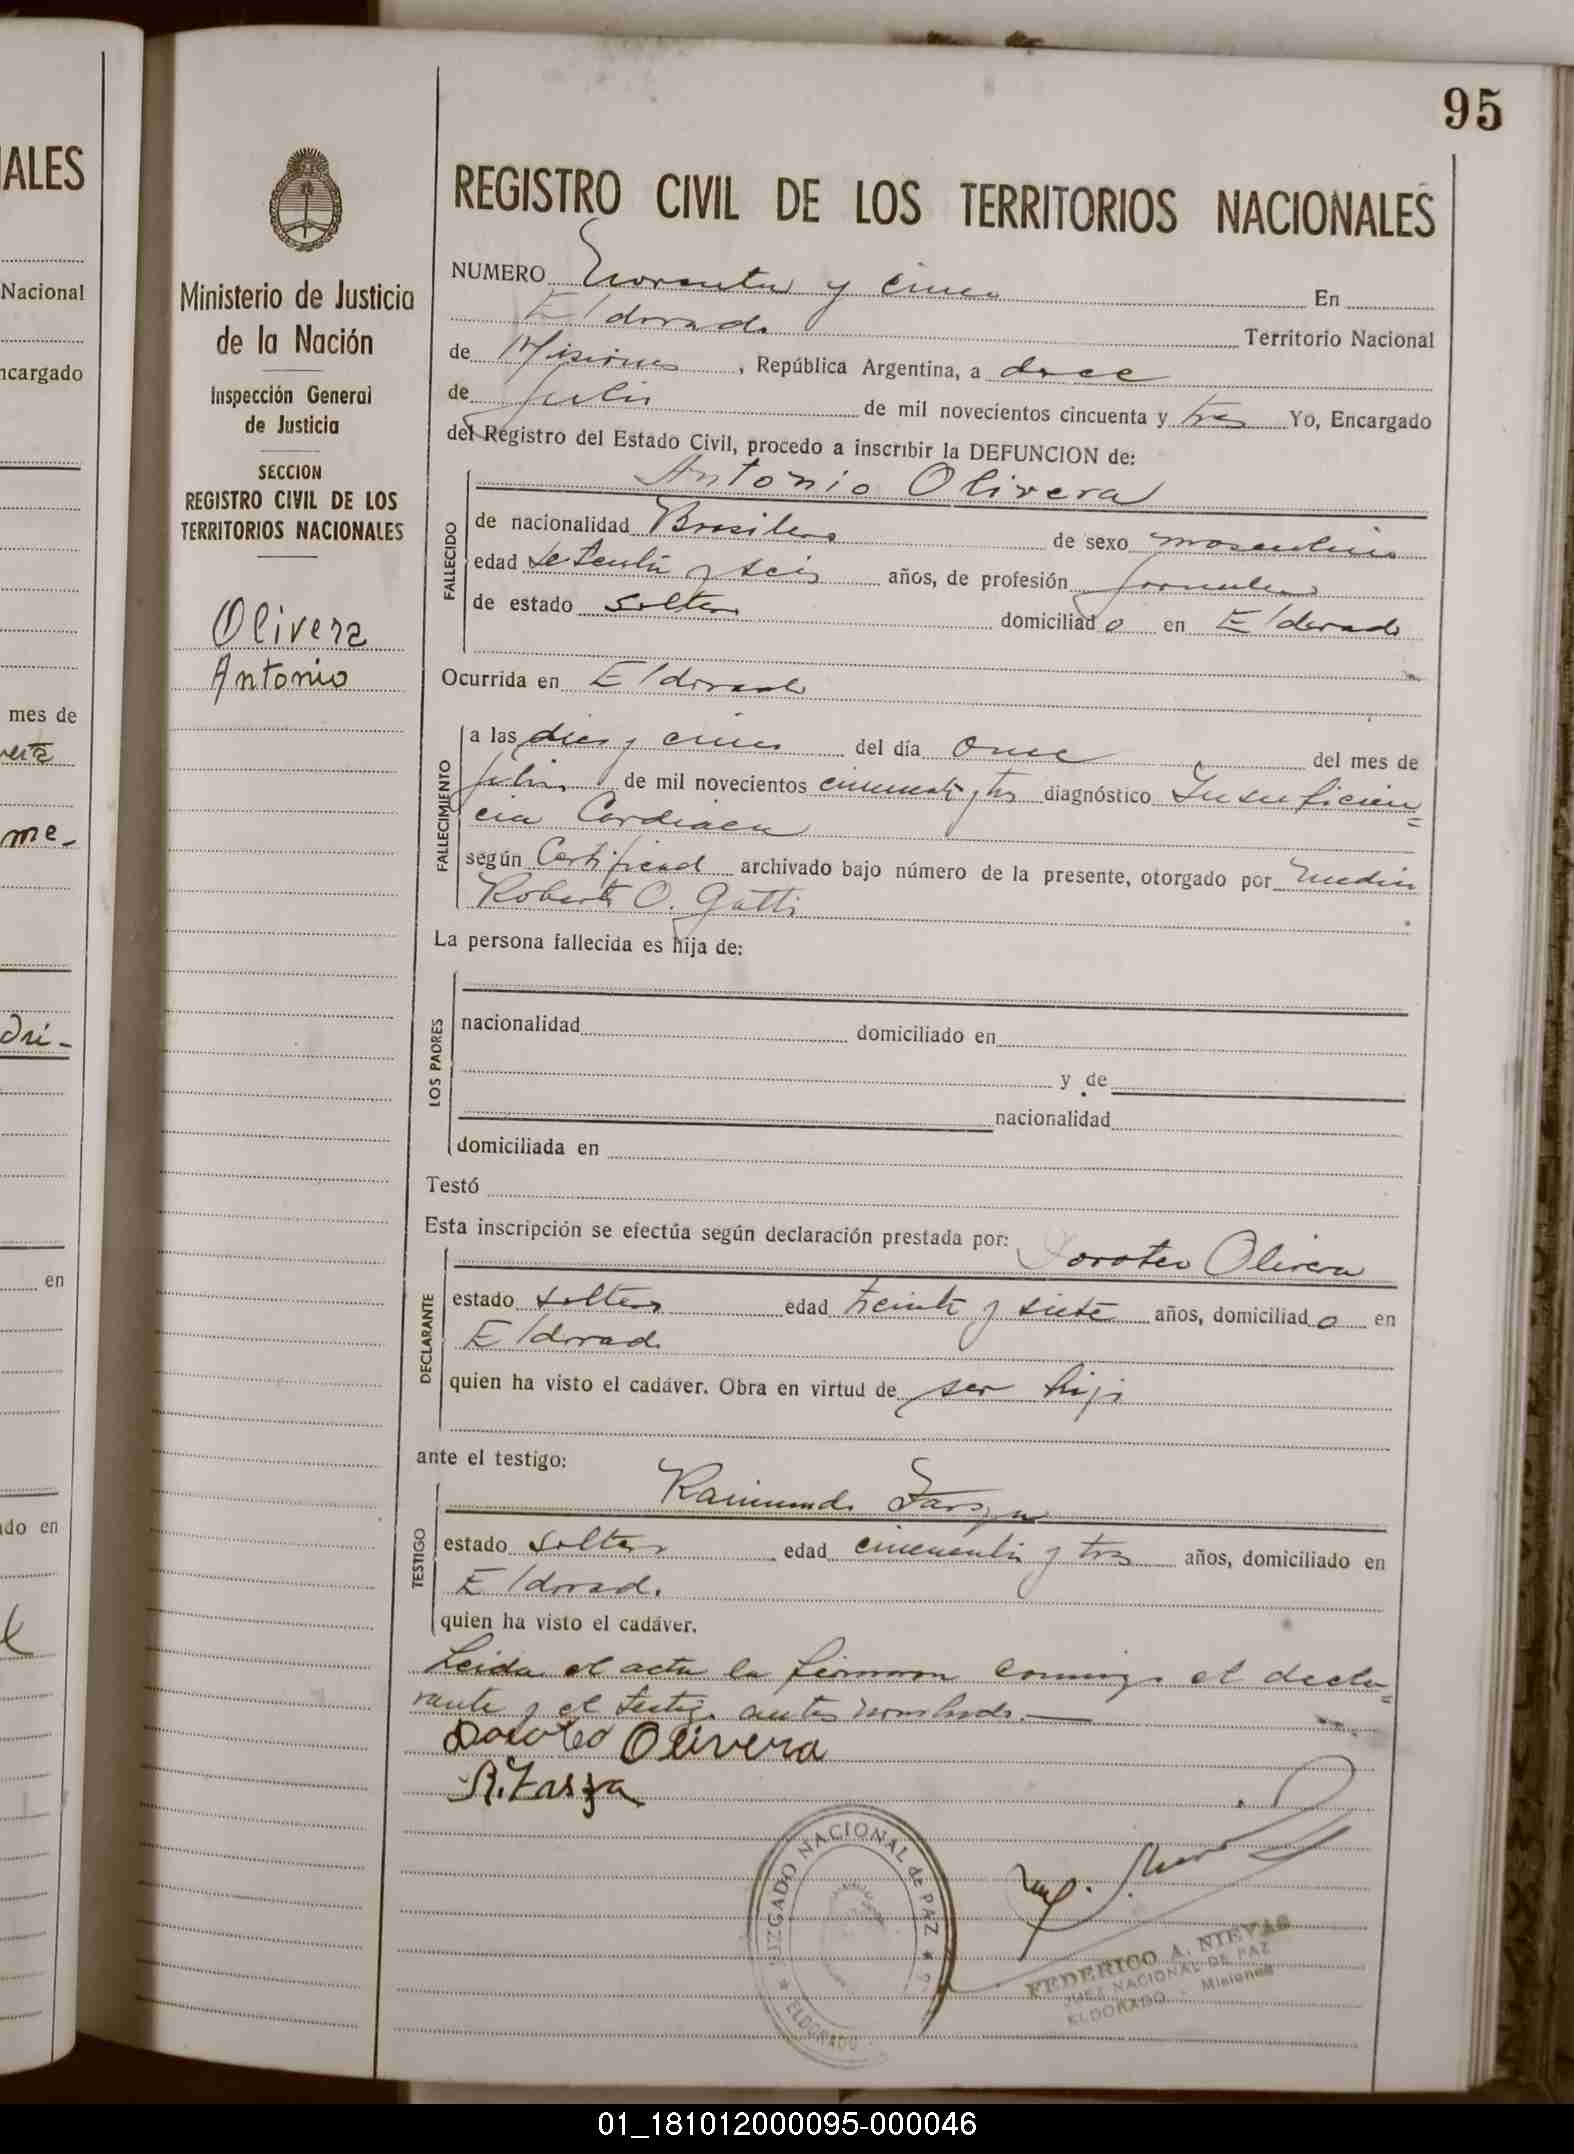 95
ALES
Nacional
ncargado
mes de
me-
en
do en
Ministerio de Justicia
de la Nación
Inspección General
de Justicia
SECCION
REGISTRO CIVIL DE LOS
TERRITORIOS NACIONALES
Olivera
Antonio
REGISTRO CIVIL DE LOS TERRITORIOS NACIONALES
NUMERO Noventa y cinco En
Eldorado Territorio Nacional
de Misiones, República Argentina, a doce
de Julio de mil novecientos cincuenta y tres Yo, Encargado
del Registro del Estado Civil, procedo a inscribir la DEFUNCION de:
Antonio Olivera
FALLECIDO
de nacionalidad Brasilero de sexo masculino
edad setenta y seis años, de profesión jornalero
de estado soltero domiciliado en Eldorado
Ocurrida en Eldorado
FALLECIMIENTO
a las diez y cinco del día once del mes de
Julio de mil novecientos cincuenta y tres diagnóstico Insuficien=
cia Cardiaca
según Certificado archivado bajo número de la presente, otorgado por medico
Roberto O. Gatti
La persona fallecida es hija de:
LOS PADRES
nacionalidad domiciliado en
y de
nacionalidad
domiciliada en
Testó
Esta inscripción se efectúa según declaración prestada por: Doroteo Olivera
DECLARANTE
estado soltero edad treinta y siete años, domiciliado en
Eldorado
quien ha visto el cadáver. Obra en virtud de ser hijo
ante el testigo:
Raimundo
TESTIGO
estado soltero edad cincuenta y tres años, domiciliado en
Eldorado
quien ha visto el cadáver.
Leida el acta la firmaron conmigo el decla=
rante y el testigo antes nombrado.—
Doroteo Olivera
R.
JUZGADO NACIONAL de PAZ
ELDORADO
FEDERICO A. NIEVAS
JUEZ NACIONAL DE PAZ
ELDORADO - Misiones
01_181012000095-000046